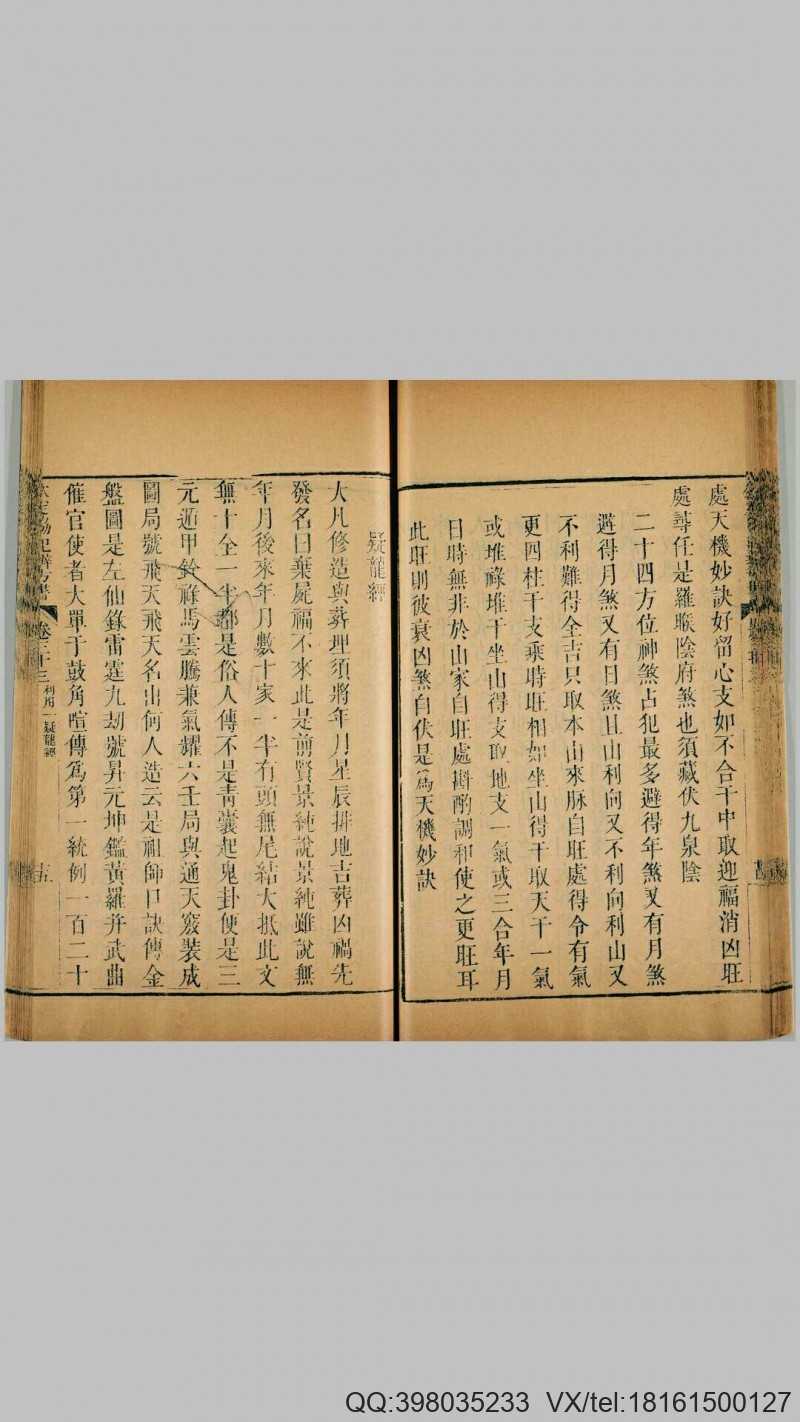 處天機妙訣好留心支如不合干中取迎福消凶旺
處尋任是羅睺陰府煞也須藏伏九泉陰
二十四方位神煞占犯最多避得年煞又有月煞
避得月煞又有日煞且山利向又不利向利山又
不利難得全吉只取本山來脉自旺處得令有氣
更四柱干支乘時旺相如坐山得干取天干一氣
或堆祿堆干坐山得支取地支一氣或三合年月
日時無非於山家自旺處斟酌調和使之更旺耳
此旺則彼衰凶煞自伏是爲天機妙訣
疑龍經
大凡修造與葬埋須將年月星辰排地吉葬凶禍先
發名曰棄屍福不來此是前賢景純說景純雖說無
年月後來年月數十家一半有頭無尾結大抵此文
無十全一半都是俗人傳不是靑囊起鬼卦便是三
元遁甲鈴祿馬雲騰兼氣耀六壬局與通天竅裝成
圖局號飛天飛天名出何人造云是祖師口訣傳金
盤圖是左仙錄雷霆九刼號昇元坤鑑黃羅幷武曲
催官使者大單于鼓角喧傳爲第一統例一百二十
卷三十三 利用一 疑龍經
五
QQ:398035233 VX/tel:18161500127